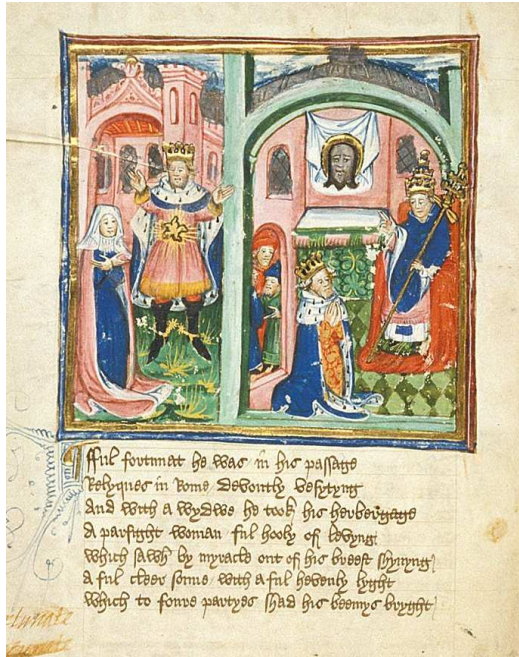 Ful fortunat he was in his passage
Relyques in Rome devoutly vesytyng
And with a wydwe he took his herbergage
A parfight woman ful hooly of levyng
which sawh by myracle out of his breest shynyng
a ful cleer sonne with a ful hevenly lyght
which to foure partyes shad his beemys bryght